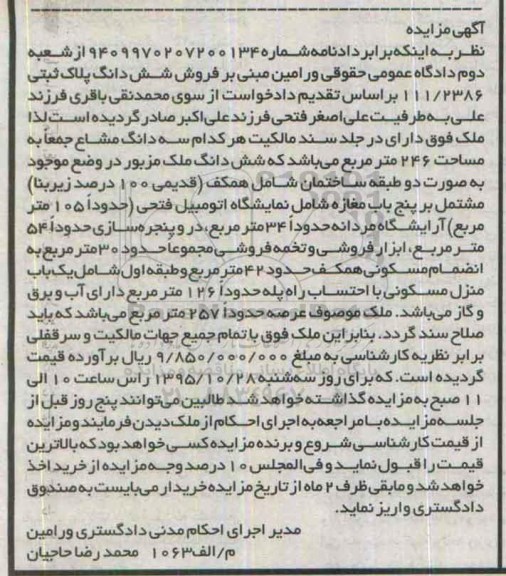 آگهی مزایده
نظر به اینکه برابر دادنامه شماره ۹۴۰۹۹۷۰۲۰۷۲۰۰۱۳۴ از شعبه
دوم دادگاه عمومی حقوقی ورامین مبنی بر فروش شش دانگ پلاک ثبتی
۱۱۱/۲۳۸۶ بر اساس تقدیم دادخواست از سوی محمدنقی باقری فرزند
علی به طرفیت علی اصغر فتحی فرزند علی اکبر صادر گردیده است لذا
ملک فوق دارای در جلد سند مالکیت هر کدام سه دانگ مشاع جمعاً به
مساحت ۲۴۶ متر مربع می‌باشد که شش دانگ ملک مزبور در وضع موجود
به صورت دو طبقه ساختمان شامل همکف (قدیمی ۱۰۰ درصد زیربنا)
مشتمل بر پنج باب مغازه شامل نمایشگاه اتومبیل فتحی (حدوداً ۱۰۵ متر
مربع) آرایشگاه مردانه حدوداً ۳۴ متر مربع، در و پنجره سازی حدوداً ۵۴
متر مربع، ابزار فروشی و تخمه فروشی مجموعا حدود ۳۰ متر مربع به
انضمام مسکونی همکف حدود ۴۲ متر مربع و طبقه اول شامل یک باب
منزل مسکونی با احتساب راه پله حدوداً ۱۲۶ متر مربع دارای آب و برق
و گاز می‌باشد. ملک موصوف عرصه حدوداً ۲۵۷ متر مربع می‌باشد که باید
صلاح سند گردد. بنابراین ملک فوق با تمام جمیع جهات مالکیت و سرقفلی
برابر نظریه کارشناسی به مبلغ ۹/۸۵۰/۰۰۰/۰۰۰ ریال برآورده قیمت
گردیده است. که برای روز سه‌شنبه ۱۳۹۵/۱۰/۲۸ رأس ساعت ۱۰ الی
۱۱ صبح به مزایده گذاشته خواهد شد طالبین می‌توانند پنج روز قبل از
جلسه مزایده با مراجعه به اجرای احکام از ملک دیدن فرمایند و مزایده
از قیمت کارشناسی شروع و برنده مزایده کسی خواهد بود که بالاترین
قیمت را قبول نماید و فی المجلس ۱۰ درصد وجه مزایده از خرید اخذ
خواهد شد و مابقی ظرف ۲ ماه از تاریخ مزایده خریدار می‌بایست به صندوق
دادگستری واریز نماید.
مدیر اجرای احکام مدنی دادگستری ورامین
م/الف ۱۰۶۳ محمد رضا حاجیان